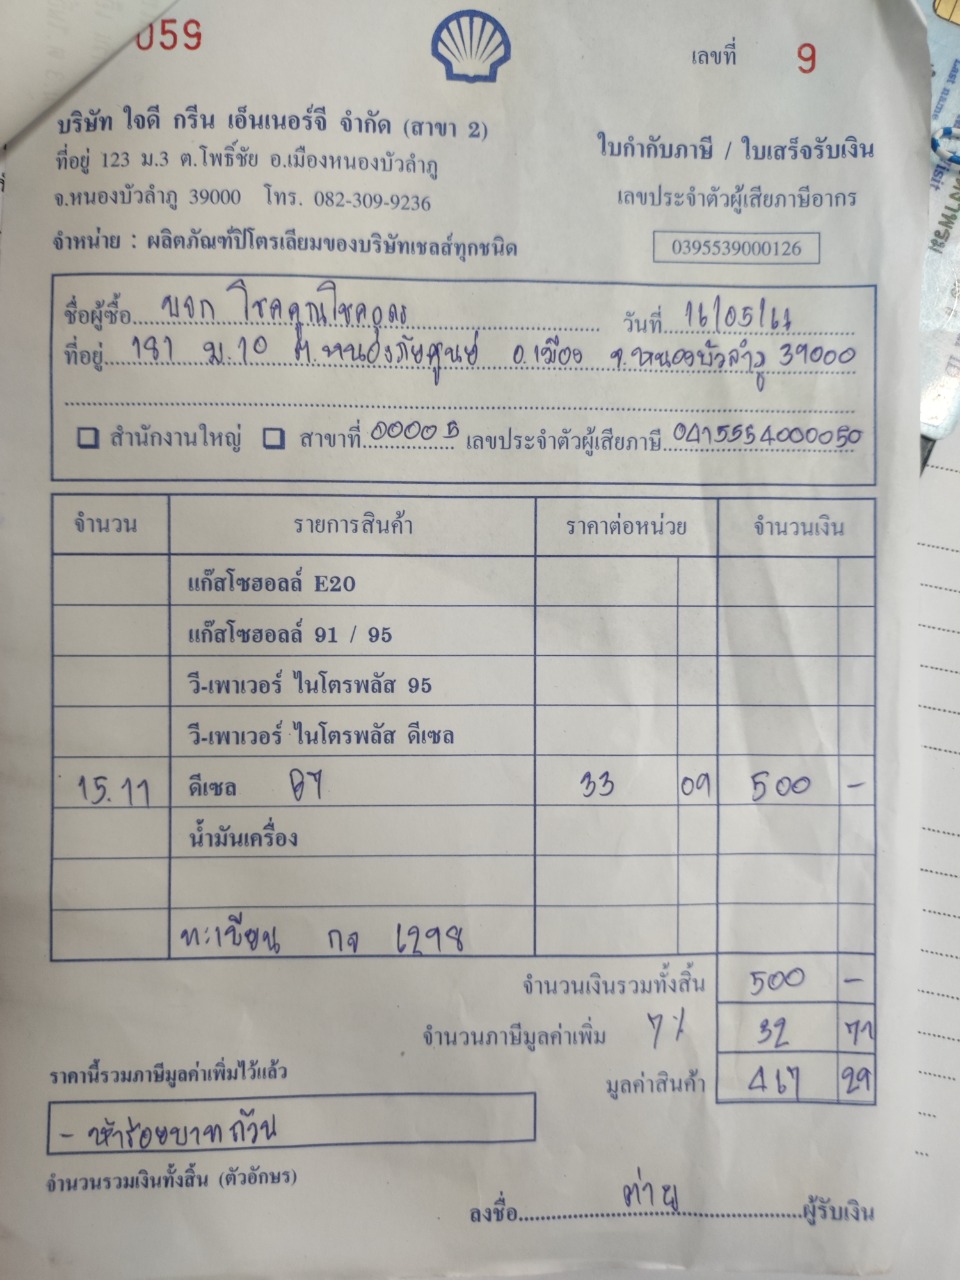 059
เลขที่ 9
บริษัท ใจดี กรีน เอ็นเนอร์จี จำกัด (สาขา 2)
ที่อยู่ 123 ม.3 ต.โพธิ์ชัย อ.เมืองหนองบัวลำภู
จ.หนองบัวลำภู 39000 โทร. 082-309-9236
จำหน่าย : ผลิตภัณฑ์ปิโตรเลียมของบริษัทเชลล์ทุกชนิด
ใบกำกับภาษี / ใบเสร็จรับเงิน
เลขประจำตัวผู้เสียภาษีอากร
0395539000126
ชื่อผู้ซื้อ บจก โชคคูณโชคอุดร วันที่ 16/05/67
ที่อยู่ 181 ม.10 ต.หนองภัยศูนย์ อ.เมือง จ.หนองบัวลำภู 39000
สำนักงานใหญ่ สาขาที่ 00005 เลขประจำตัวผู้เสียภาษี 0415554000050
จำนวน รายการสินค้า ราคาต่อหน่วย จำนวนเงิน
แก๊สโซฮอลล์ E20
แก๊สโซฮอลล์ 91 / 95
วี-เพาเวอร์ ไนโตรพลัส 95
วี-เพาเวอร์ ไนโตรพลัส ดีเซล
15.11 ดีเซล B7 33 09 500 -
น้ำมันเครื่อง
ทะเบียน กจ 1298
จำนวนเงินรวมทั้งสิ้น 500 -
จำนวนภาษีมูลค่าเพิ่ม 7% 32 71
ราคานี้รวมภาษีมูลค่าเพิ่มไว้แล้ว
มูลค่าสินค้า 467 29
- ห้าร้อยบาทถ้วน
จำนวนรวมเงินทั้งสิ้น (ตัวอักษร)
ลงชื่อ ต่าย ผู้รับเงิน